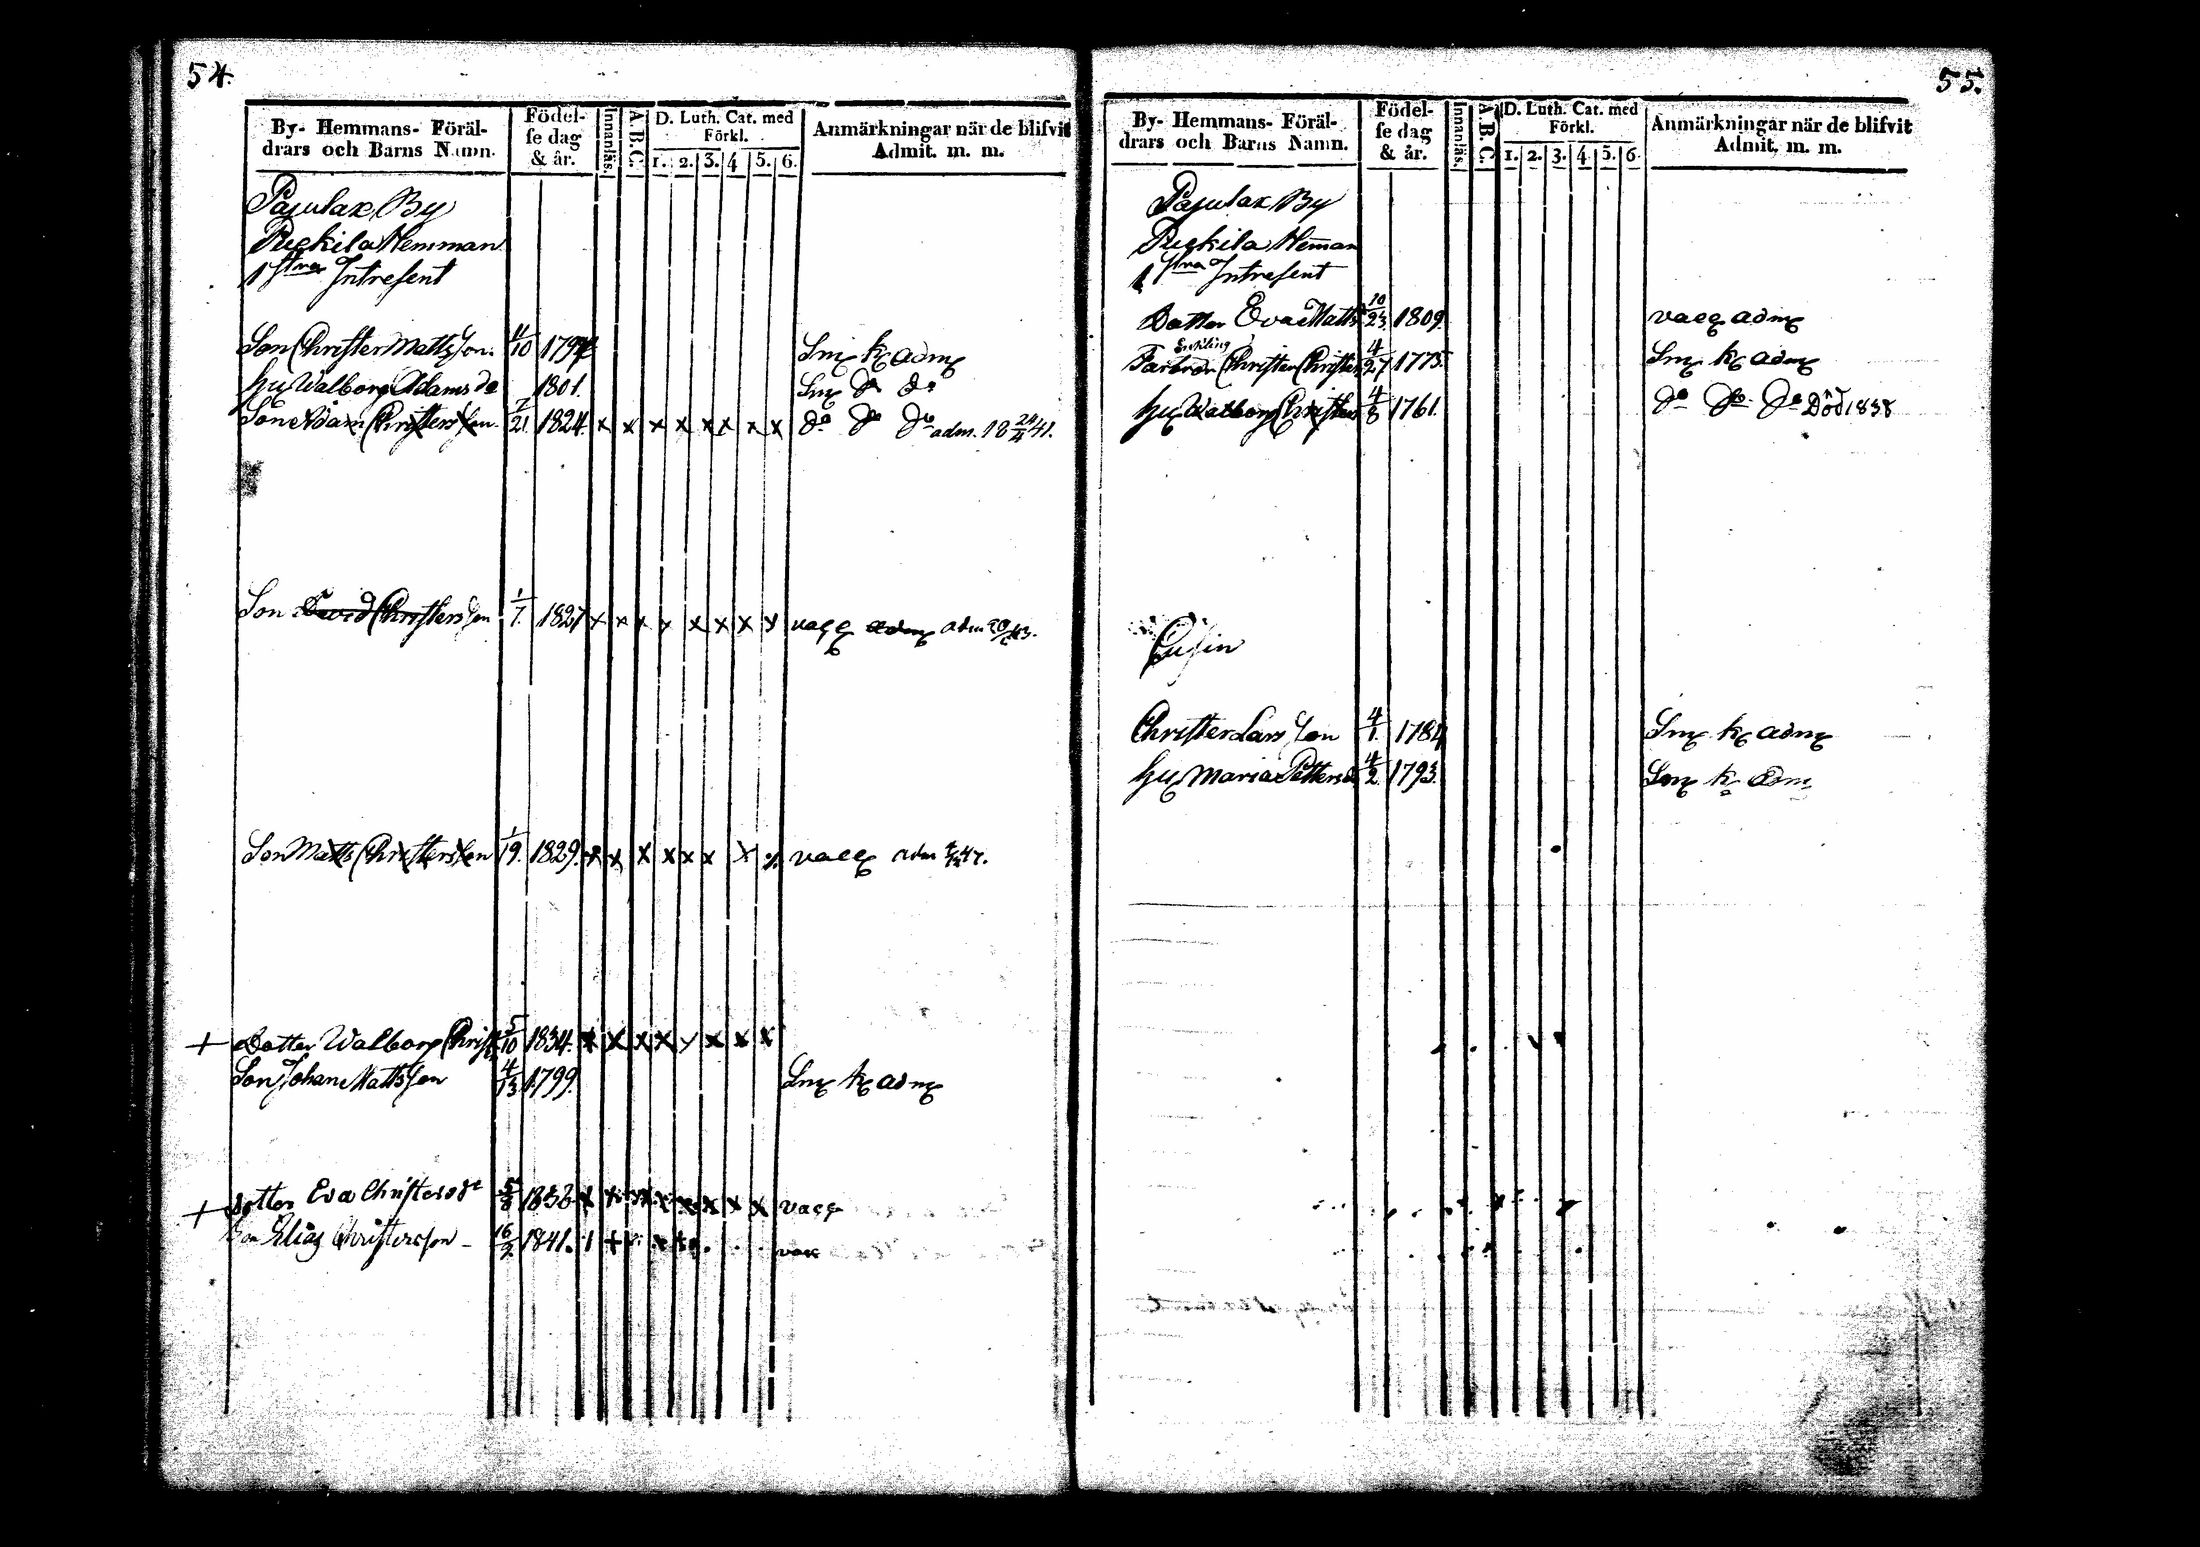 54.
By- Hemmans- Föräl-
drars och Barns Namn.
Födel-
se dag
& år.
Innanläs.
A.B.C.
D. Luth. Cat. med
Förkl.
1. 2. 3. 4 5. 6.
Anmärkningar när de blifvit
Admit. m. m.
Pajulax By
Puckila Hemman
1 stra Intresent
Son Christer Mattsson 11/10 1794 Smk adm
hu Walborg Adamsdr 1801. Sm do do
Son Adam Christersson 7/21 1824. x x x x x x x x do do do adm. 18 24/4 41.
Son David Christersson 1/7. 1827 x x x x x x x x vacc adm adm 20/6 43.
Son Matts Christersson 1/19. 1829. x x x x x x x x vacc adm 47.
+ Dotter Walborg Christ 5/10 1834. x x x x x x x x
Son Johan Mattsson 4/13 1799. Smk adm
+ dotter Eva Christersdr 5/8 1838 x x x x x x x x vacc
Son Elias Christersson - 16/2 1841. vac
55.
By- Hemmans- Föräl-
drars och Barns Namn.
Födel-
se dag
& år.
Innanläs.
A.B.C.
D. Luth. Cat. med
Förkl.
1. 2. 3. 4. 5. 6.
Anmärkningar när de blifvit
Admit. m. m.
Pajulax By
Puckila Heman
1 stra Intresent
Dotter Eva Matts 10/23 1809 vacc adm
Enkling
Farbror Christer Christers 4/27 1775. Smk adm
hu Walborg Christers 4/8 1761. do do do Död 1838
Christer Larsson 4/1. 1784 Smk adm
hu Maria Pettersd 4/2 1793. Smk adm